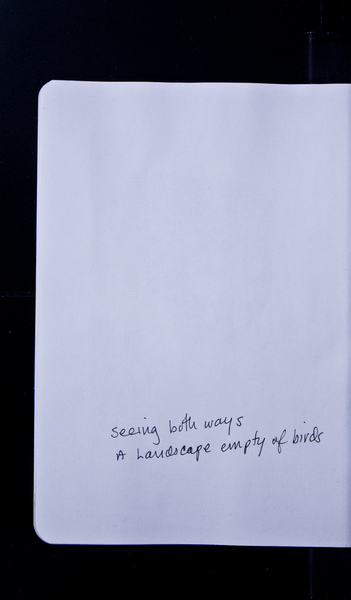 seeing both ways
A Landscape empty of birds